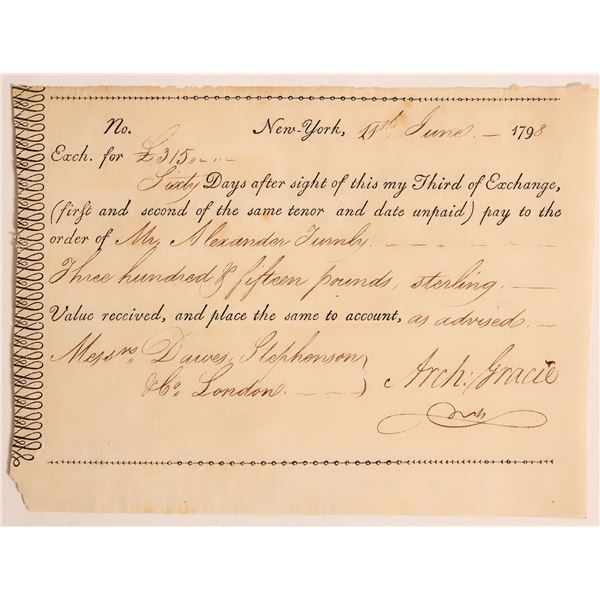 No. New-York, 11th June. - 1798
Exch. for £315,,-,,-
Sixty Days after sight of this my Third of Exchange,
(first and second of the same tenor and date unpaid) pay to the
order of Mr. Alexander
Three hundred & fifteen pounds, sterling.
Value received, and place the same to account, as advised.
Messrs. Dawes, Stephenson
& Co. London.
Arch: Gracie